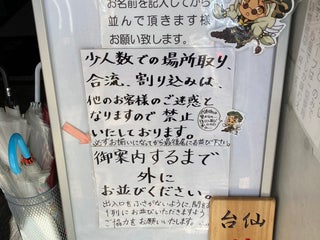 お名前を記入してから
並んで頂きます様
お願い致します。
少人数での場所取り、
合流、割り込みは、
他のお客様のご迷惑と
なりますので禁止
いたしております。
必ずお揃いになってから最後尾にお並び下さい
御案内するまで
外に
お並びください。
出入口をふさがないように、
1列にお並びいただきますよう
ご協力をお願いします。
仙台